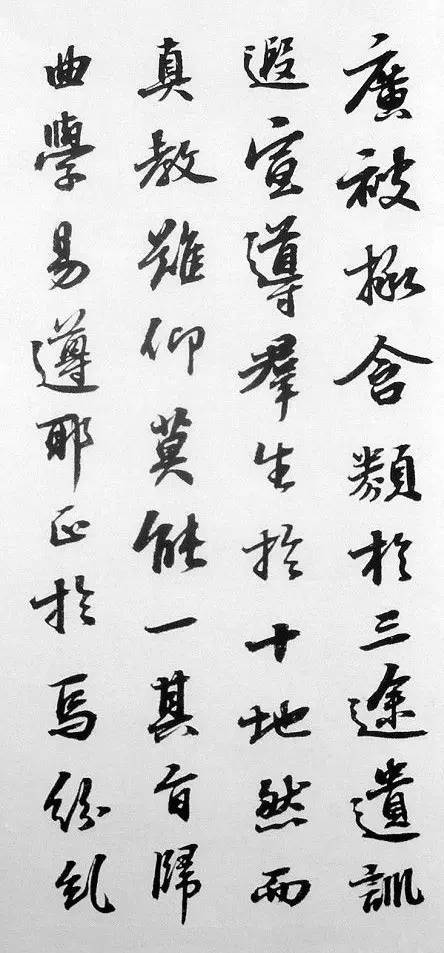 廣被拯含類於三途遺訓
遐宣導羣生於十地然而
真教難仰莫能一其旨歸
曲學易遵耶正於焉紛糺